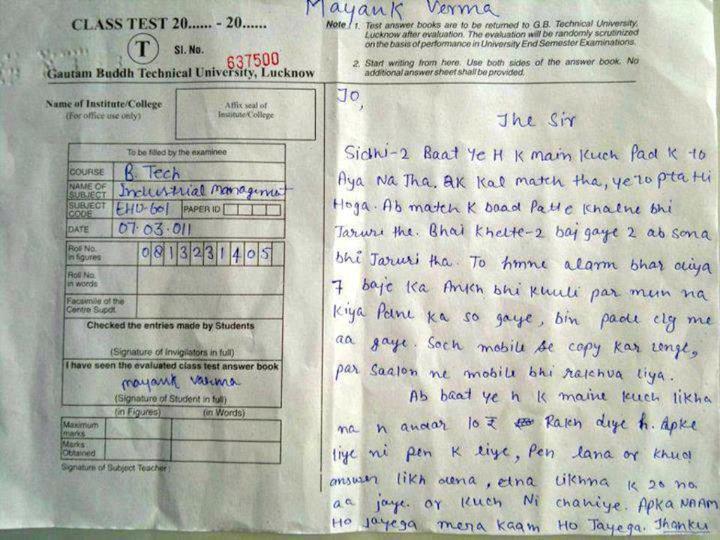 Mayank Verma
CLASS TEST 20...... - 20......
T Sl. No.
637500
Gautam Buddh Technical University, Lucknow
Name of Institute/College
(For office use only)
Affix seal of
Institute/College
To be filled by the examinee
COURSE B. Tech
NAME OF
SUBJECT Industrial management
SUBJECT
CODE EHU-601 PAPER ID
DATE 07.03.011
Roll No.
in figures 0813231405
Roll No.
in words
Facsimile of the
Centre Supdt.
Checked the entries made by Students
(Signature of Invigilators in full)
I have seen the evaluated class test answer book
mayank varma
(Signature of Student in full)
(in Figures) (in Words)
Maximum
marks
Marks
Obtained
Signature of Subject Teacher :
Note : 1. Test answer books are to be returned to G.B. Technical University,
Lucknow after evaluation. The evaluation will be randomly scrutinized
on the basis of performance in University End Semester Examinations.
2. Start writing from here. Use both sides of the answer book. No
additional answer sheet shall be provided.
To,
The Sir
Sidhi-2 Baat Ye H K main Kuch Pad K to
Aya Na Tha, Kal match tha, ye to pta Hi
Hoga. Ab match K baad Patte Khalne bhi
Jaruri the. Bhai Khelte-2 baj gaye 2 ab sona
bhi Jaruri tha. To hmne alarm bhar diya
7 baje Ka Ankh bhi Khuli par mun na
Kiya Padne Ka so gaye, bin pade clg me
aa gaye. Soch mobile se copy Kar lenge,
par Saalon ne mobile bhi rakhva liya.
Ab baat ye h K maine Kuch likha
na h andar 10 ₹ Rakh diye h. Apke
liye ni pen K liye, Pen lana or khud
answer likh dena, etna likhna K 20 no
aa jaye. or Kuch Ni chahiye. Apka NAAM
Ho Jayega mera Kaam Ho Jayega. Thanku